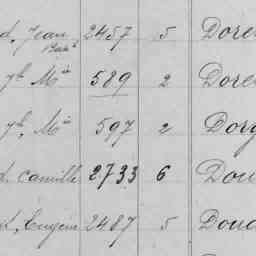 d. Jean Bapt^e 2457 5 Dore
589 2 Dore
597 2 Dorg
d. Camille 2733 6 Dou
d. Eugène 2487 5 Doua